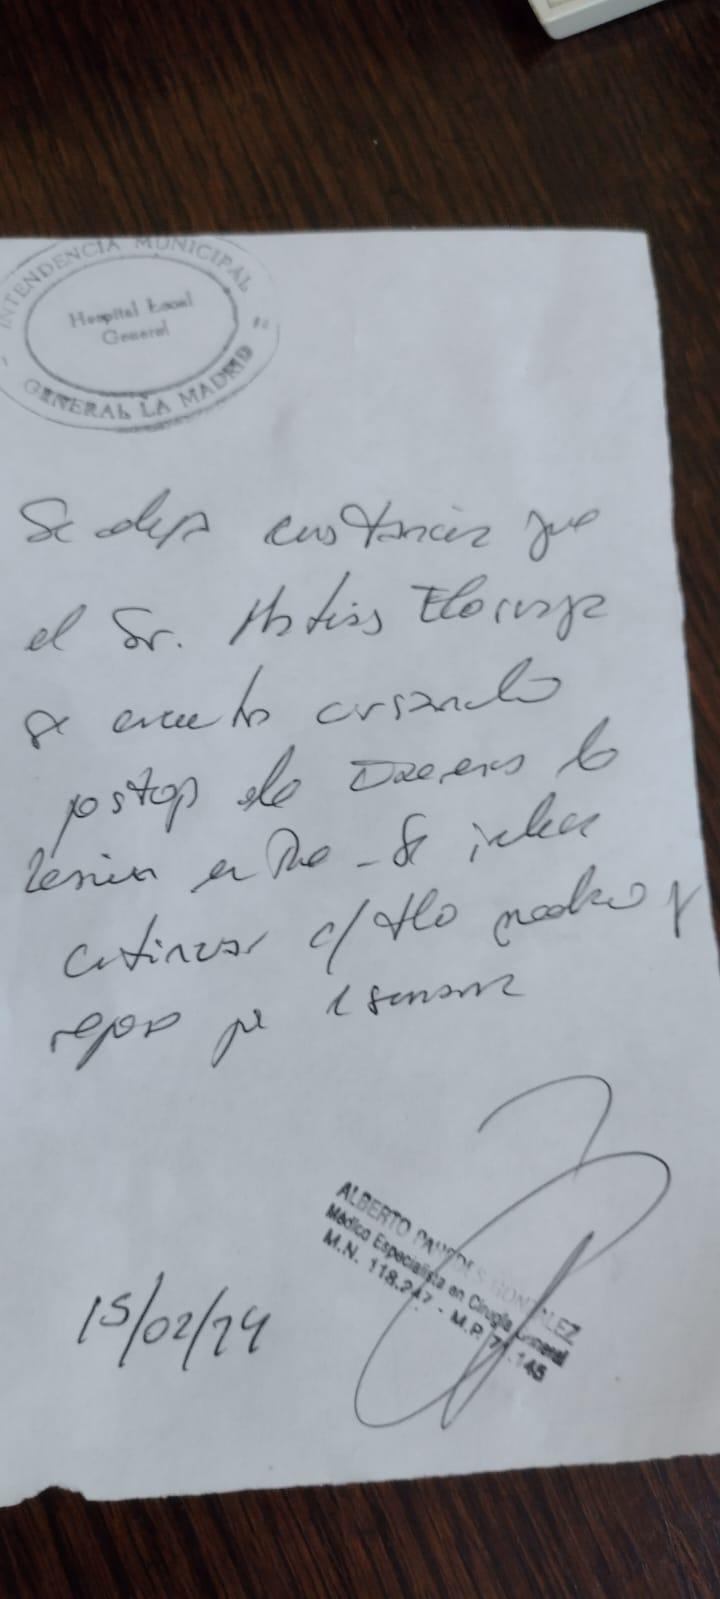 INTENDENCIA MUNICIPAL
Hospital Local
General
GENERAL LA MADRID
Se deja constancia que
el Sr. Matias
se encuentra cursando
postop de
lesion en - Se indica
continuar c/ tto medico y
reposo por 1 semana
ALBERTO GONZALEZ
Médico Especialista en Cirugía General
M.N. 118.247 - M.P.
15/02/24